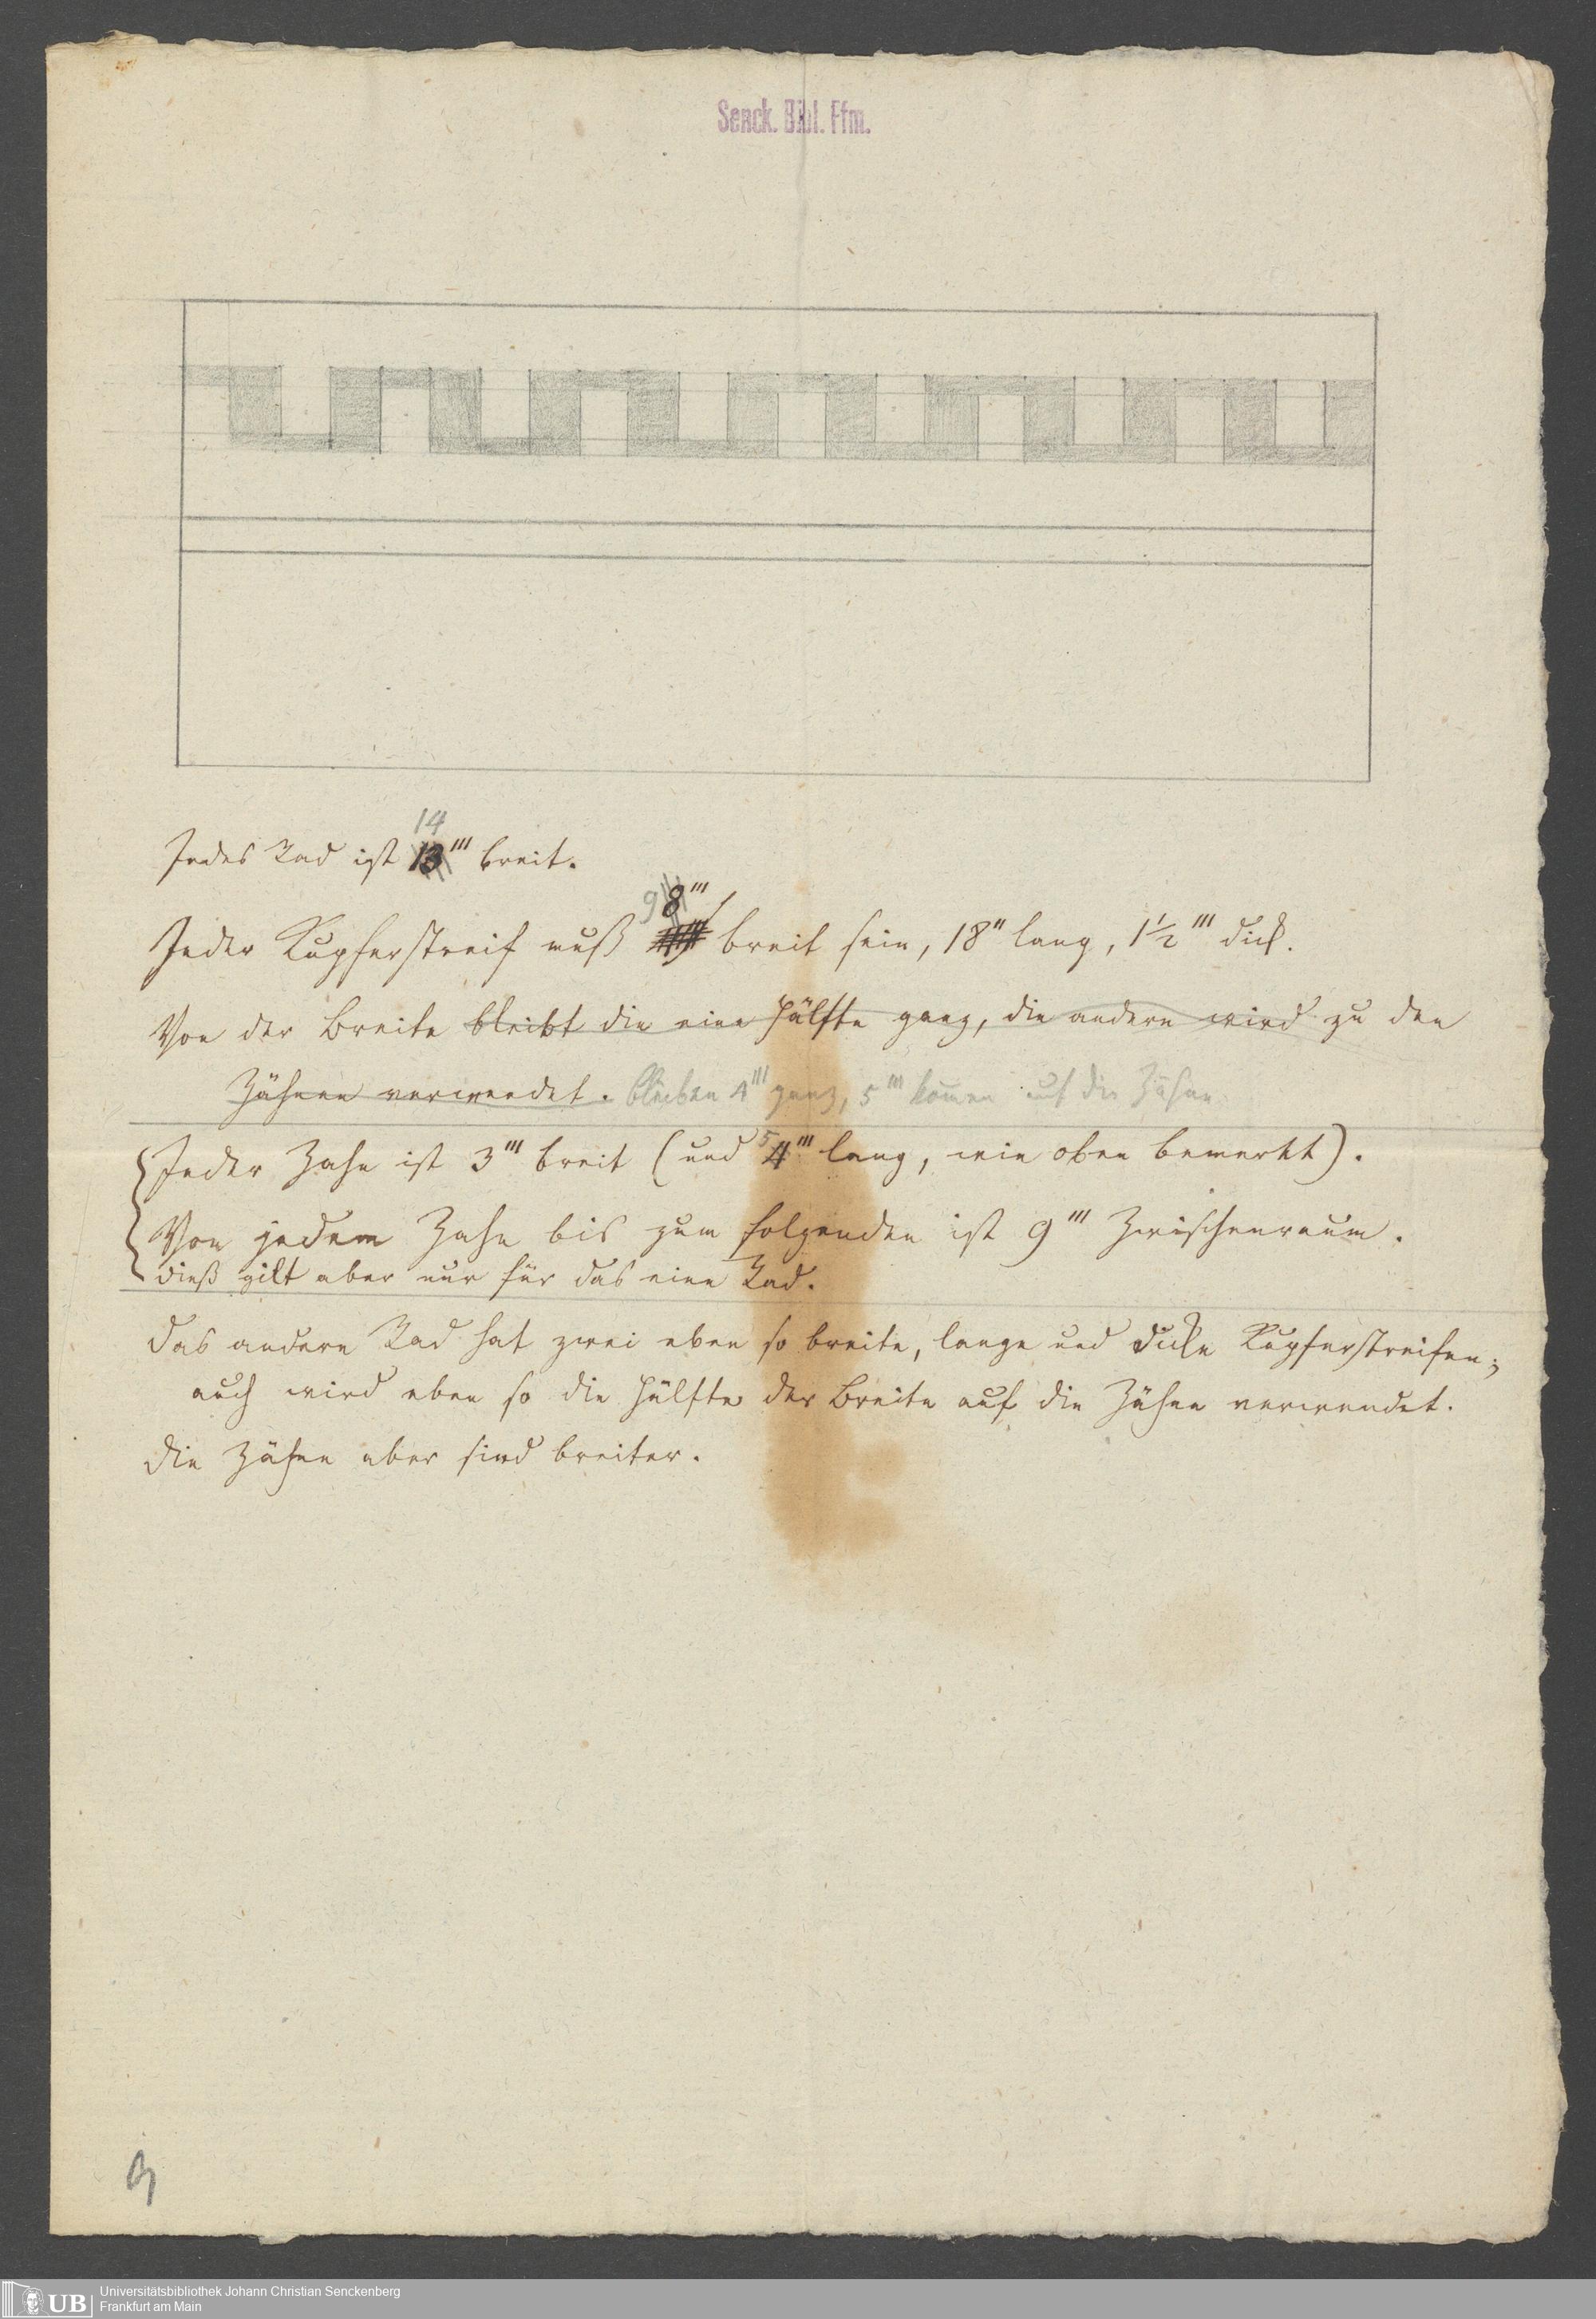 Senck. Bibl. Ffm.
14
Jedes Rad ist 13''' breit.
9 8'''
Jeder Kupferstreif muß breit sein, 18'' lang, 1½''' dick.
Von der Breite bleibt die eine Hälfte ganz, die andere wird zu den
Zähnen verwendet. bleiben 4''' ganz, 5''' kom̄en auf die Zähne
Jeder Zahn ist 3''' breit (und 5 4''' lang, wie oben bemerkt).
Von jedem Zahn bis zum folgenden ist 9''' Zwischenraum.
Dieß gilt aber nur für das eine Rad.
Das andere Rad hat zwei eben so breite, lange und dicke Kupferstreifen;
auch wird eben so die Hälfte der Breite auf die Zähne verwendet.
Die Zähne aber sind breiter.
UB
Universitätsbibliothek Johann Christian Senckenberg
Frankfurt am Main